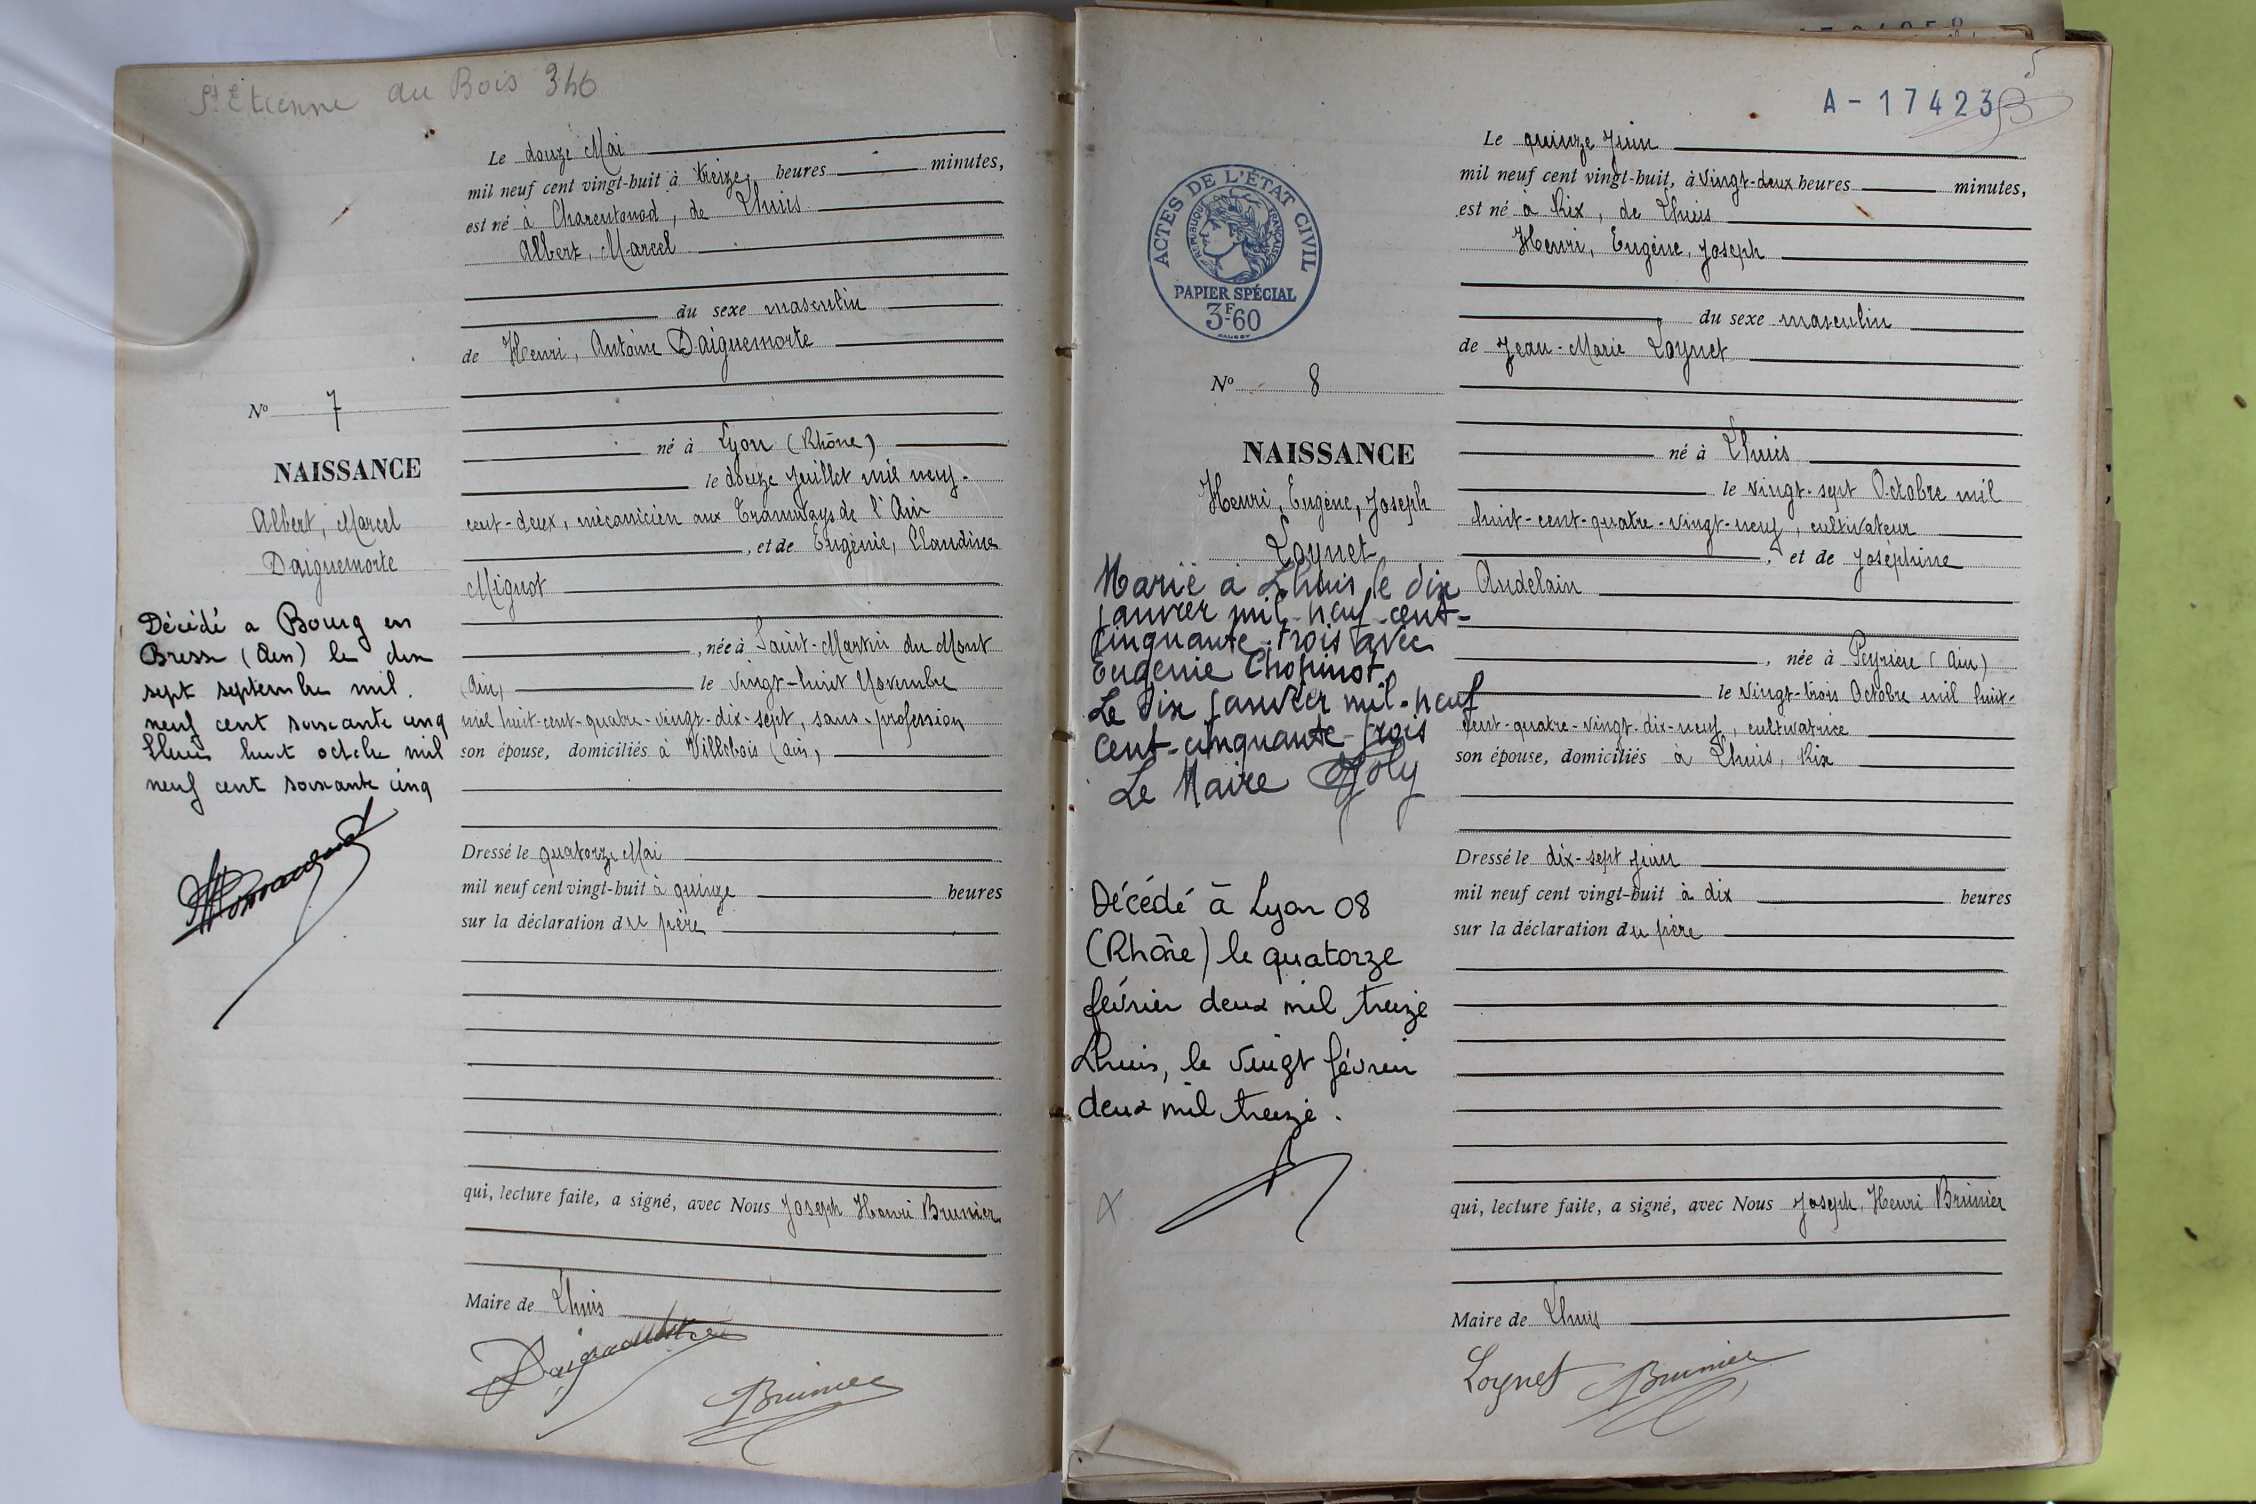 St Etienne du Bois 346
Le douze Mai
mil neuf cent vingt-huit à treize heures minutes,
est né à Charentonod, de Lhuis
Albert, Marcel
du sexe masculin
de Henri, Antoine Daiguemorte
N° 7
né à Lyon (Rhône)
NAISSANCE
le douze juillet mil neuf-
Albert, Marcel
cent-deux, mécanicien aux Tramways de l'Ain
Daiguemorte
, et de Eugénie, Claudine
Mignot
Décédé a Bourg en
Bresse (Ain) le dix
sept septembre mil.
neuf cent soixante cinq
Lhuis huit octobre mil
neuf cent soixante cinq
, née à Saint-Martin du Mont
(Ain) le vingt-huit Novembre
mil huit-cent-quatre-vingt-dix-sept, sans-profession
son épouse, domiciliés à Villebois (Ain)
Dressé le quatorze Mai
mil neuf cent vingt-huit à quinze heures
sur la déclaration du père
qui, lecture faite, a signé, avec Nous Joseph Henri Brunier
Maire de Lhuis
Brunier
A-17423
5
Le quinze Juin
mil neuf cent vingt-huit, à vingt-deux heures minutes,
est né à Rix, de Lhuis
Henri, Eugène, Joseph
ACTES DE L'ÉTAT CIVIL
RÉPUBLIQUE FRANÇAISE
PAPIER SPÉCIAL
3F60
du sexe masculin
de Jean-Marie Loynet
N° 8
né à Lhuis
NAISSANCE
le vingt-sept Octobre mil
Henri, Eugène, Joseph
huit-cent-quatre-vingt-neuf, cultivateur
Loynet
, et de Joséphine
Andelain
Marié à Lhuis le dix
janvier mil-neuf-cent-
cinquante-trois avec
Eugénie Chopinot.
Le dix janvier mil-neuf
cent-cinquante-trois
Le Maire Joly
, née à Peyrieu (Ain)
le vingt-trois Octobre mil huit-
cent-quatre-vingt-dix-neuf, cultivatrice
son épouse, domiciliés à Lhuis, Rix
Dressé le dix-sept Juin
mil neuf cent vingt-huit à dix heures
sur la déclaration du père
Décédé à Lyon 08
(Rhône) le quatorze
février deux mil treize
Lhuis, le vingt février
deux mil treize.
qui, lecture faite, a signé, avec Nous Joseph, Henri Brunier
Maire de Lhuis
Loynet Brunier